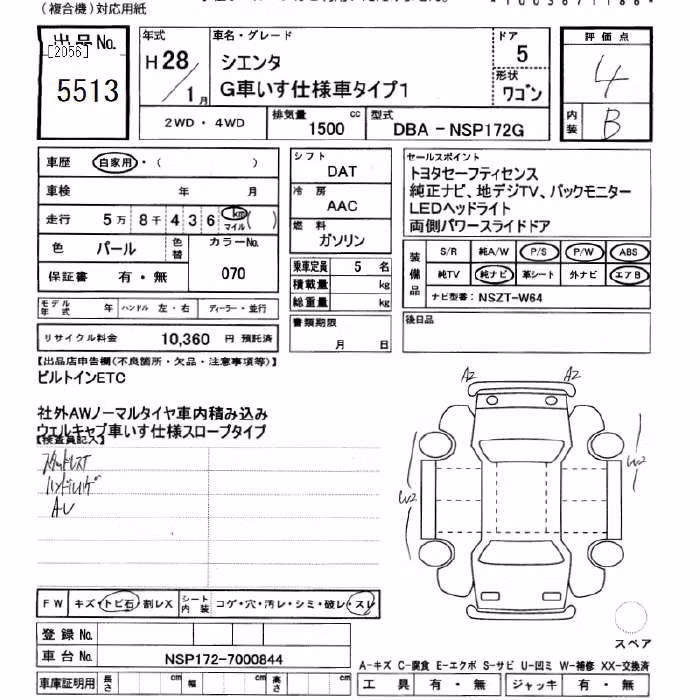 (複合機)対応用紙
出品No.
[2056]
5513
年式
H28/1月
車名・グレード
シエンタ
G車いす仕様車タイプ1
ドア
5
形状
ワゴン
評価点
4
内装
B
2WD・4WD
排気量 1500 cc
型式 DBA-NSP172G
車歴 自家用・( )
車検 年 月
走行 5万8千436 km マイル ( )
色 パール 色替
カラーNo.
070
保証書 有・無
モデル年式 年 ハンドル 左・右 ディーラー・並行
リサイクル料金 10,360 円 預託済
シフト
DAT
冷房
AAC
燃料
ガソリン
乗車定員 5 名
積載量 kg
総重量 kg
書類期限
月 日
セールスポイント
トヨタセーフティセンス
純正ナビ、地デジTV、バックモニター
LEDヘッドライト
両側パワースライドドア
装備品
S/R 純A/W P/S P/W ABS
純TV 純ナビ 革シート 外ナビ エアB
ナビ型番: NSZT-W64
後日品
【出品店申告欄(不良箇所・欠品・注意事項等)】
ビルトインETC
社外AWノーマルタイヤ車内積み込み
ウェルキャブ車いす仕様スロープタイプ
【検査員記入】
AU
A2 A2
W2 W2
FW キズ・トビ石・割レX シート内装 コゲ・穴・汚レ・シミ・破レ・スレ
スペア
登録No.
車台No. NSP172-7000844
A-キズ C-腐食 E-エクボ S-サビ U-凹ミ W-補修 XX-交換済
車庫証明用 長さ cm 幅 cm 高さ cm
工具 有・無 ジャッキ 有・無